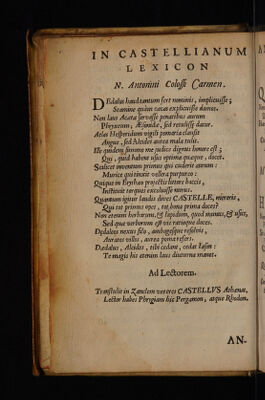 IN CASTELLIANUM
LEXICON
N. Antonini Colossi Carmen.
DEdalus haud tantum fert nominis, implicuisse;
Stamine quàm cæcas explicuisse domos.
Non laus Aeata servasse penatibus aurum
Phryxeum; Æsonide, sed retulisse datur.
Atlas Hesperidum vigili pomaria clausit
Angue, sed Alcides aurea mala tulit.
Ille quidem summo me judice dignus honore est;
Qui, quid habent usus optima quæque, docet.
Scilicet inventum primus qui cuderit aurum:
Murice qui tinxit vellera purpureo:
Quique in Erythæo projectis littore baccis,
Instituit torques excoluisse novos.
Quantam igitur laudis dotes CASTELLE, mereris,
Qui tot primus opes, tot bona prima doces?
Non etenim herbarum, & lapidum, quod munus, & usus,
Sed quæ verborum est vis ratioque doces.
Dædaleos nexus filo, ambagesque resolvis,
Auratos villos, aurea poma refers.
Dædalus, Alcides, tibi cedant, cedat Iason:
Te magis his etenim laus diuturna manet.
Ad Lectorem.
Transtulit in Zanclem veteres CASTELLVS Athenas,
Lector habes Phrygiam hic Pergamon, atque Rhodon.
AN-